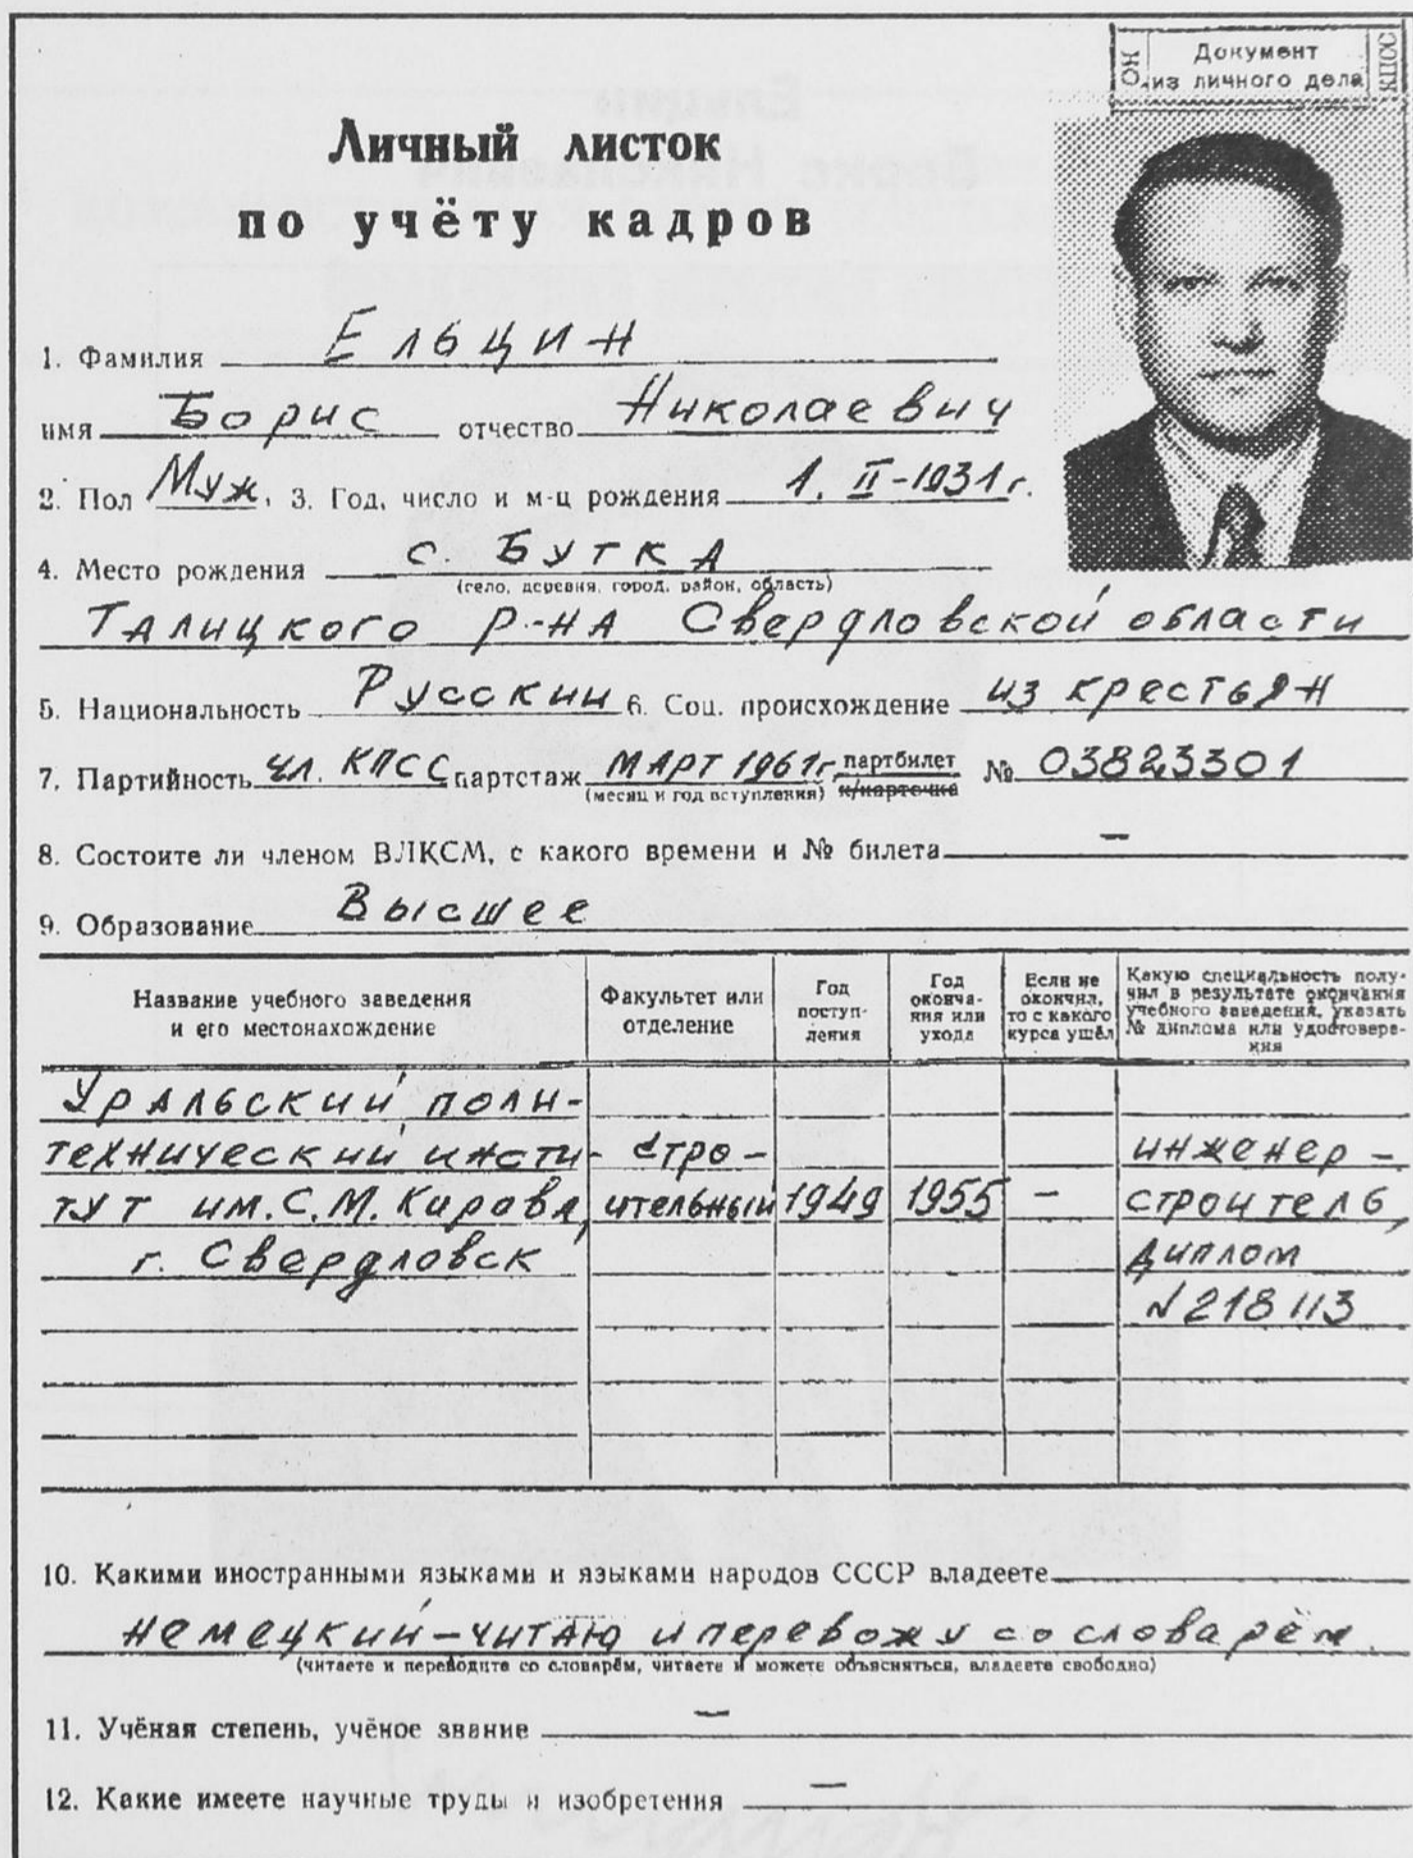 ОК Документ КПСС
из личного дела
Личный листок
по учёту кадров
1. Фамилия Ельцин
имя Борис отчество Николаевич
2. Пол Муж. 3. Год, число и м-ц рождения 1. II-1931 г.
4. Место рождения с. Бутка
(село, деревня, город, район, область)
Талицкого р-на Свердловской области
5. Национальность Русский 6. Соц. происхождение из крестьян
7. Партийность чл. КПСС партстаж март 1961 г. партбилет № 03823301
(месяц и год вступления) к/карточка
8. Состоите ли членом ВЛКСМ, с какого времени и № билета –
9. Образование Высшее
Название учебного заведения
и его местонахождение
Факультет или
отделение
Год
поступ-
ления
Год
оконча-
ния или
ухода
Если не
окончил,
то с какого
курса ушёл
Какую специальность полу-
чил в результате окончания
учебного заведения, указать
№ диплома или удостовере-
ния
Уральский поли-
технический инсти- стро- инженер-
тут им. С.М. Кирова, ительный 1949 1955 – строитель,
г. Свердловск диплом
№ 218113
10. Какими иностранными языками и языками народов СССР владеете
немецкий – читаю и перевожу со словарём
(читаете и переводите со словарём, читаете и можете объясняться, владеете свободно)
11. Учёная степень, учёное звание –
12. Какие имеете научные труды и изобретения –